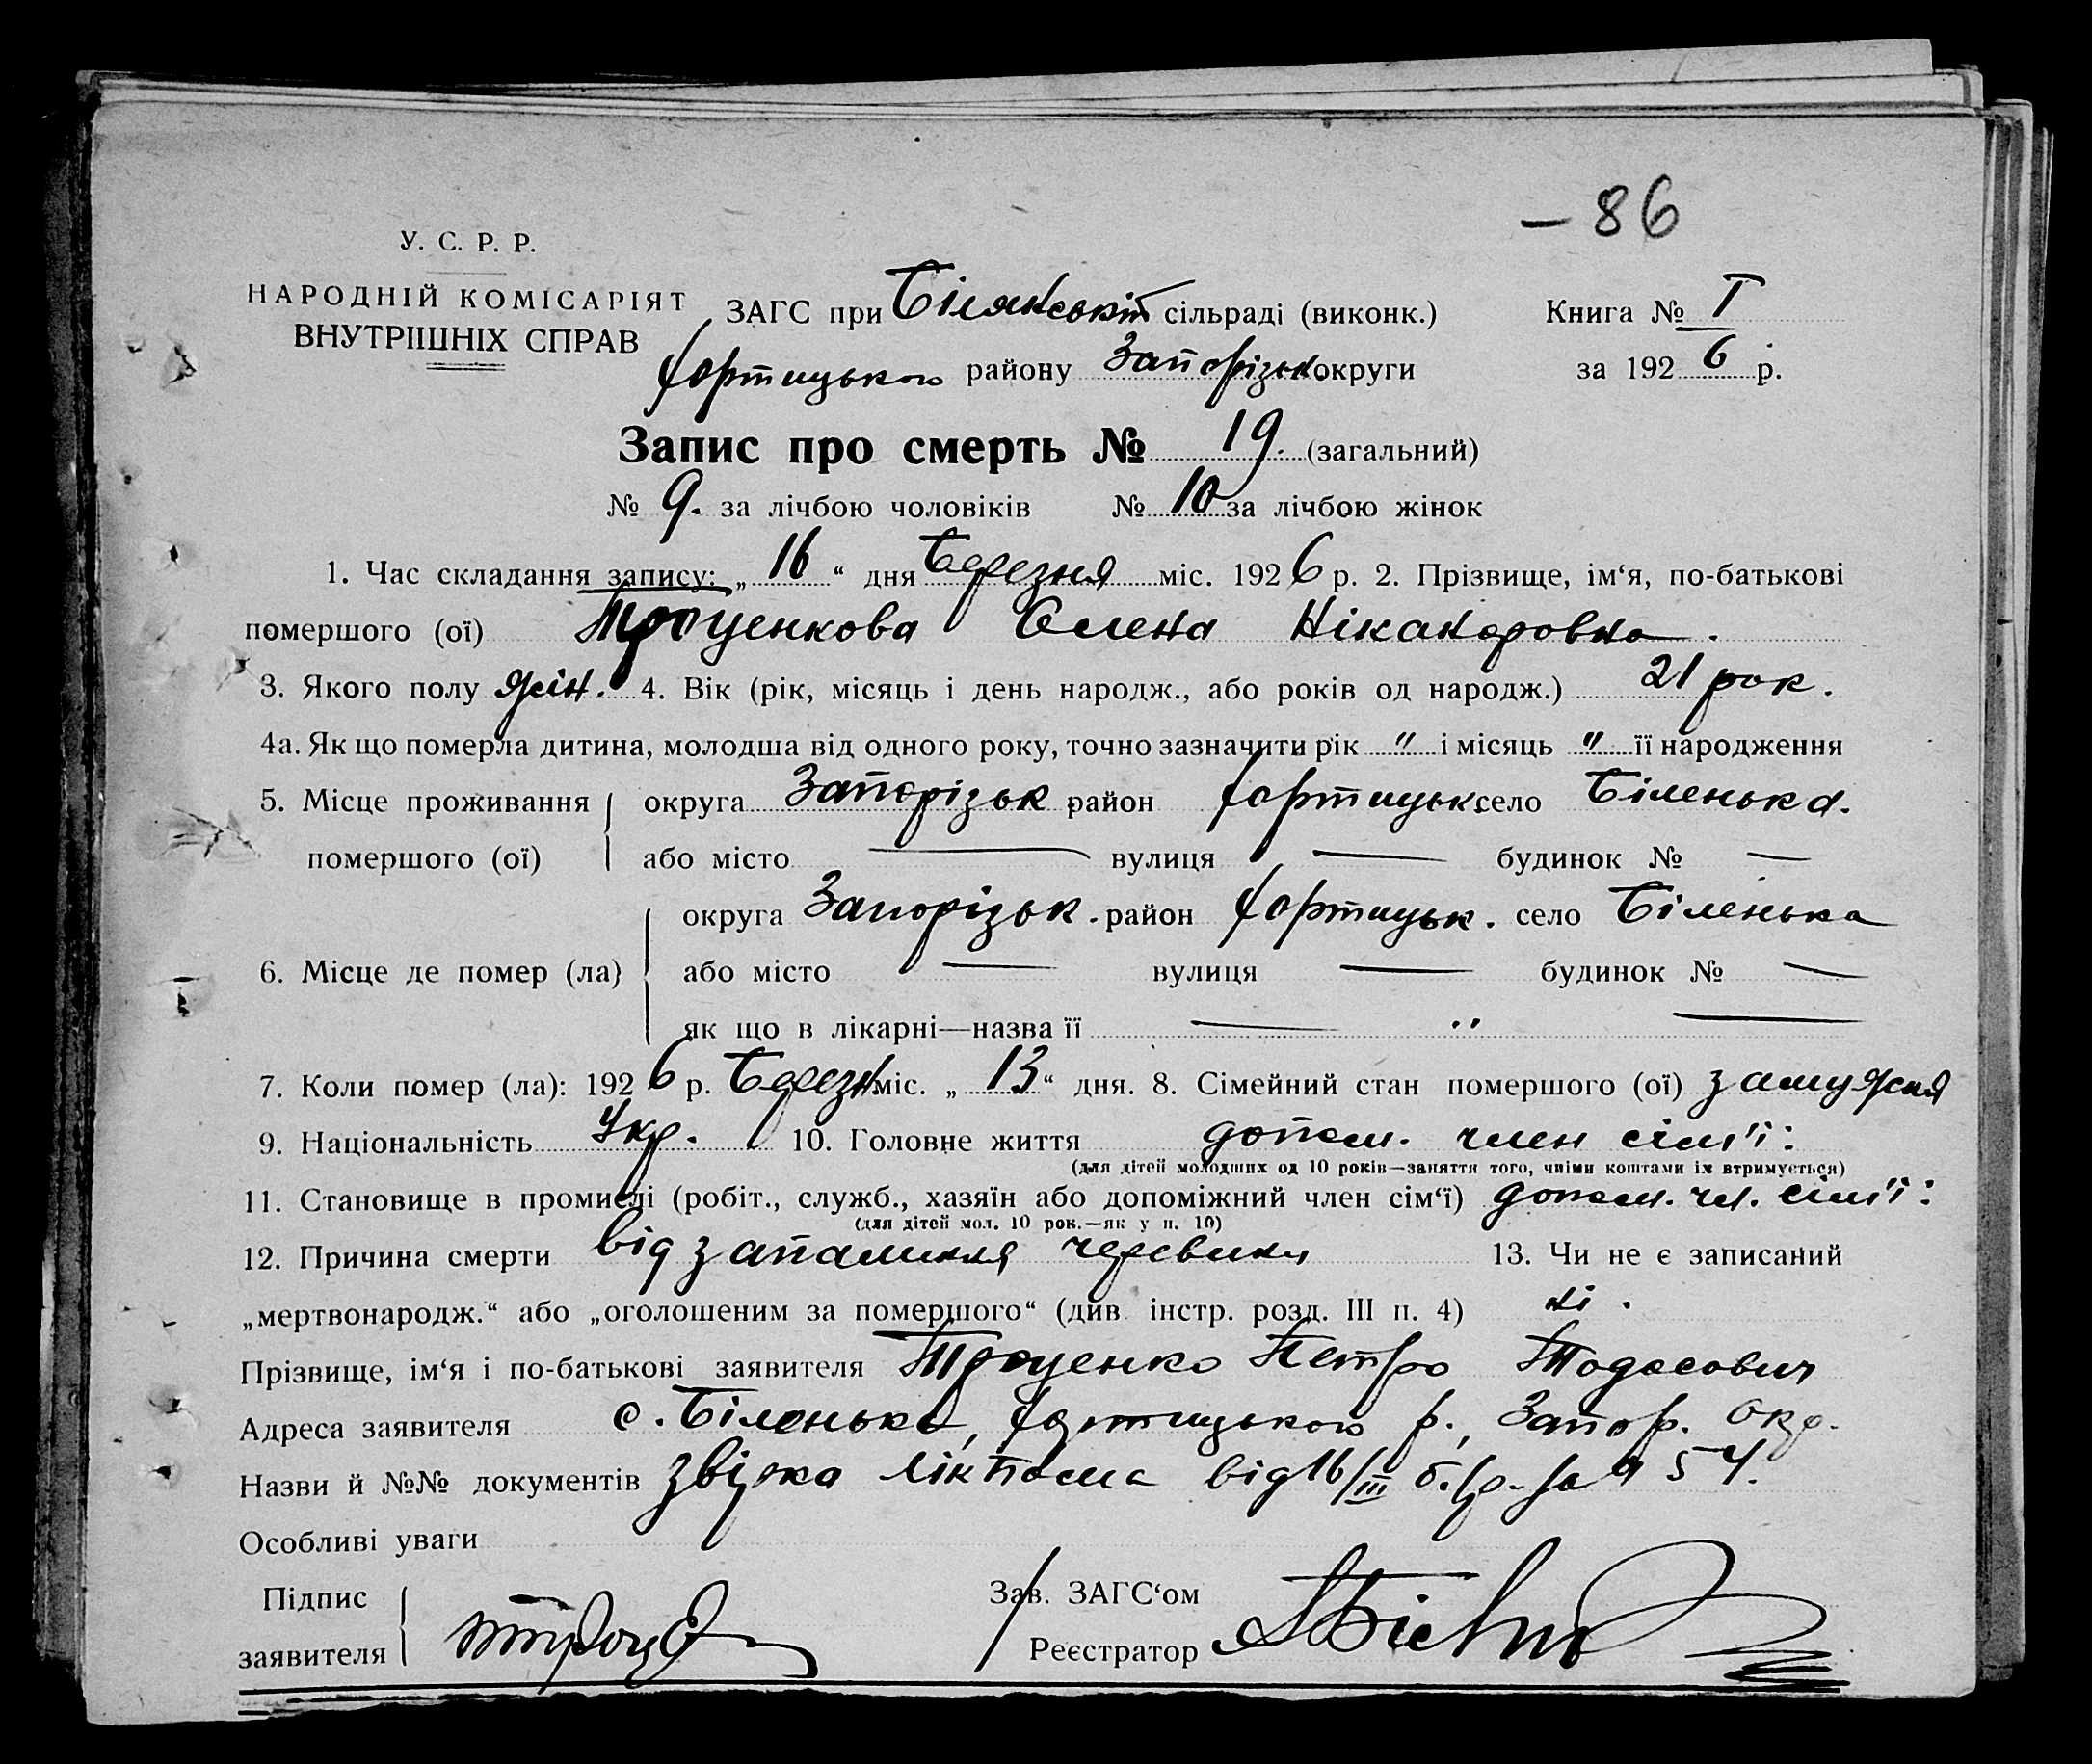 — 86
У. С. Р. Р.
НАРОДНІЙ КОМІСАРІЯТ
ВНУТРІШНІХ СПРАВ
ЗАГС при Білянській сільраді (виконк.) Книга № I
Хортицького району Запорізьк. округи за 1926 р.
Запис про смерть № 19. (загальний)
№ 9. за лічбою чоловіків № 10 за лічбою жінок
1. Час складання запису: „16“ дня Березня міс. 1926 р. 2. Прізвище, ім‘я, по-батькові
помершого (ої) Троценкова Елена Ніканоровна.
3. Якого полу жін. 4. Вік (рік, місяць і день народж., або років од народж.) 21 рок.
4а. Як що померла дитина, молодша від одного року, точно зазначити рік " і місяць " її народження
5. Місце проживання округа Запорізьк район Хортицьк село Біленька.
помершого (ої) або місто — вулиця — будинок № —
округа Запорізьк. район Хортицьк. село Біленька
6. Місце де помер (ла) або місто — вулиця — будинок № —
як що в лікарні—назва її — " —
7. Коли помер (ла): 1926 р. Березн. міс. „13“ дня. 8. Сімейний стан помершого (ої) замужня
9. Національність Укр. 10. Головне життя допом. член сім'ї:
(для дітей молодших од 10 років—заняття того, чиїми коштами їх втримується)
11. Становище в промислі (робіт., служб., хазяїн або допоміжний член сім‘ї) допом. чл. сім'ї:
(для дітей мол. 10 рок.—як у п. 10)
12. Причина смерти від запалення черевини 13. Чи не є записаний
„мертвонародж.“ або „оголошеним за помершого“ (див. інстр. розд. III п. 4) ні.
Прізвище, ім‘я і по-батькові заявителя Троценко Петро Тодосович
Адреса заявителя с. Біленька, Хортицького р., Запор. Окр.
Назви й №№ документів звідка лікпома від 16/III б./р. за № 54.
Особливі уваги
Підпис
заявителя
Зав. ЗАГС‘ом
Реєстратор